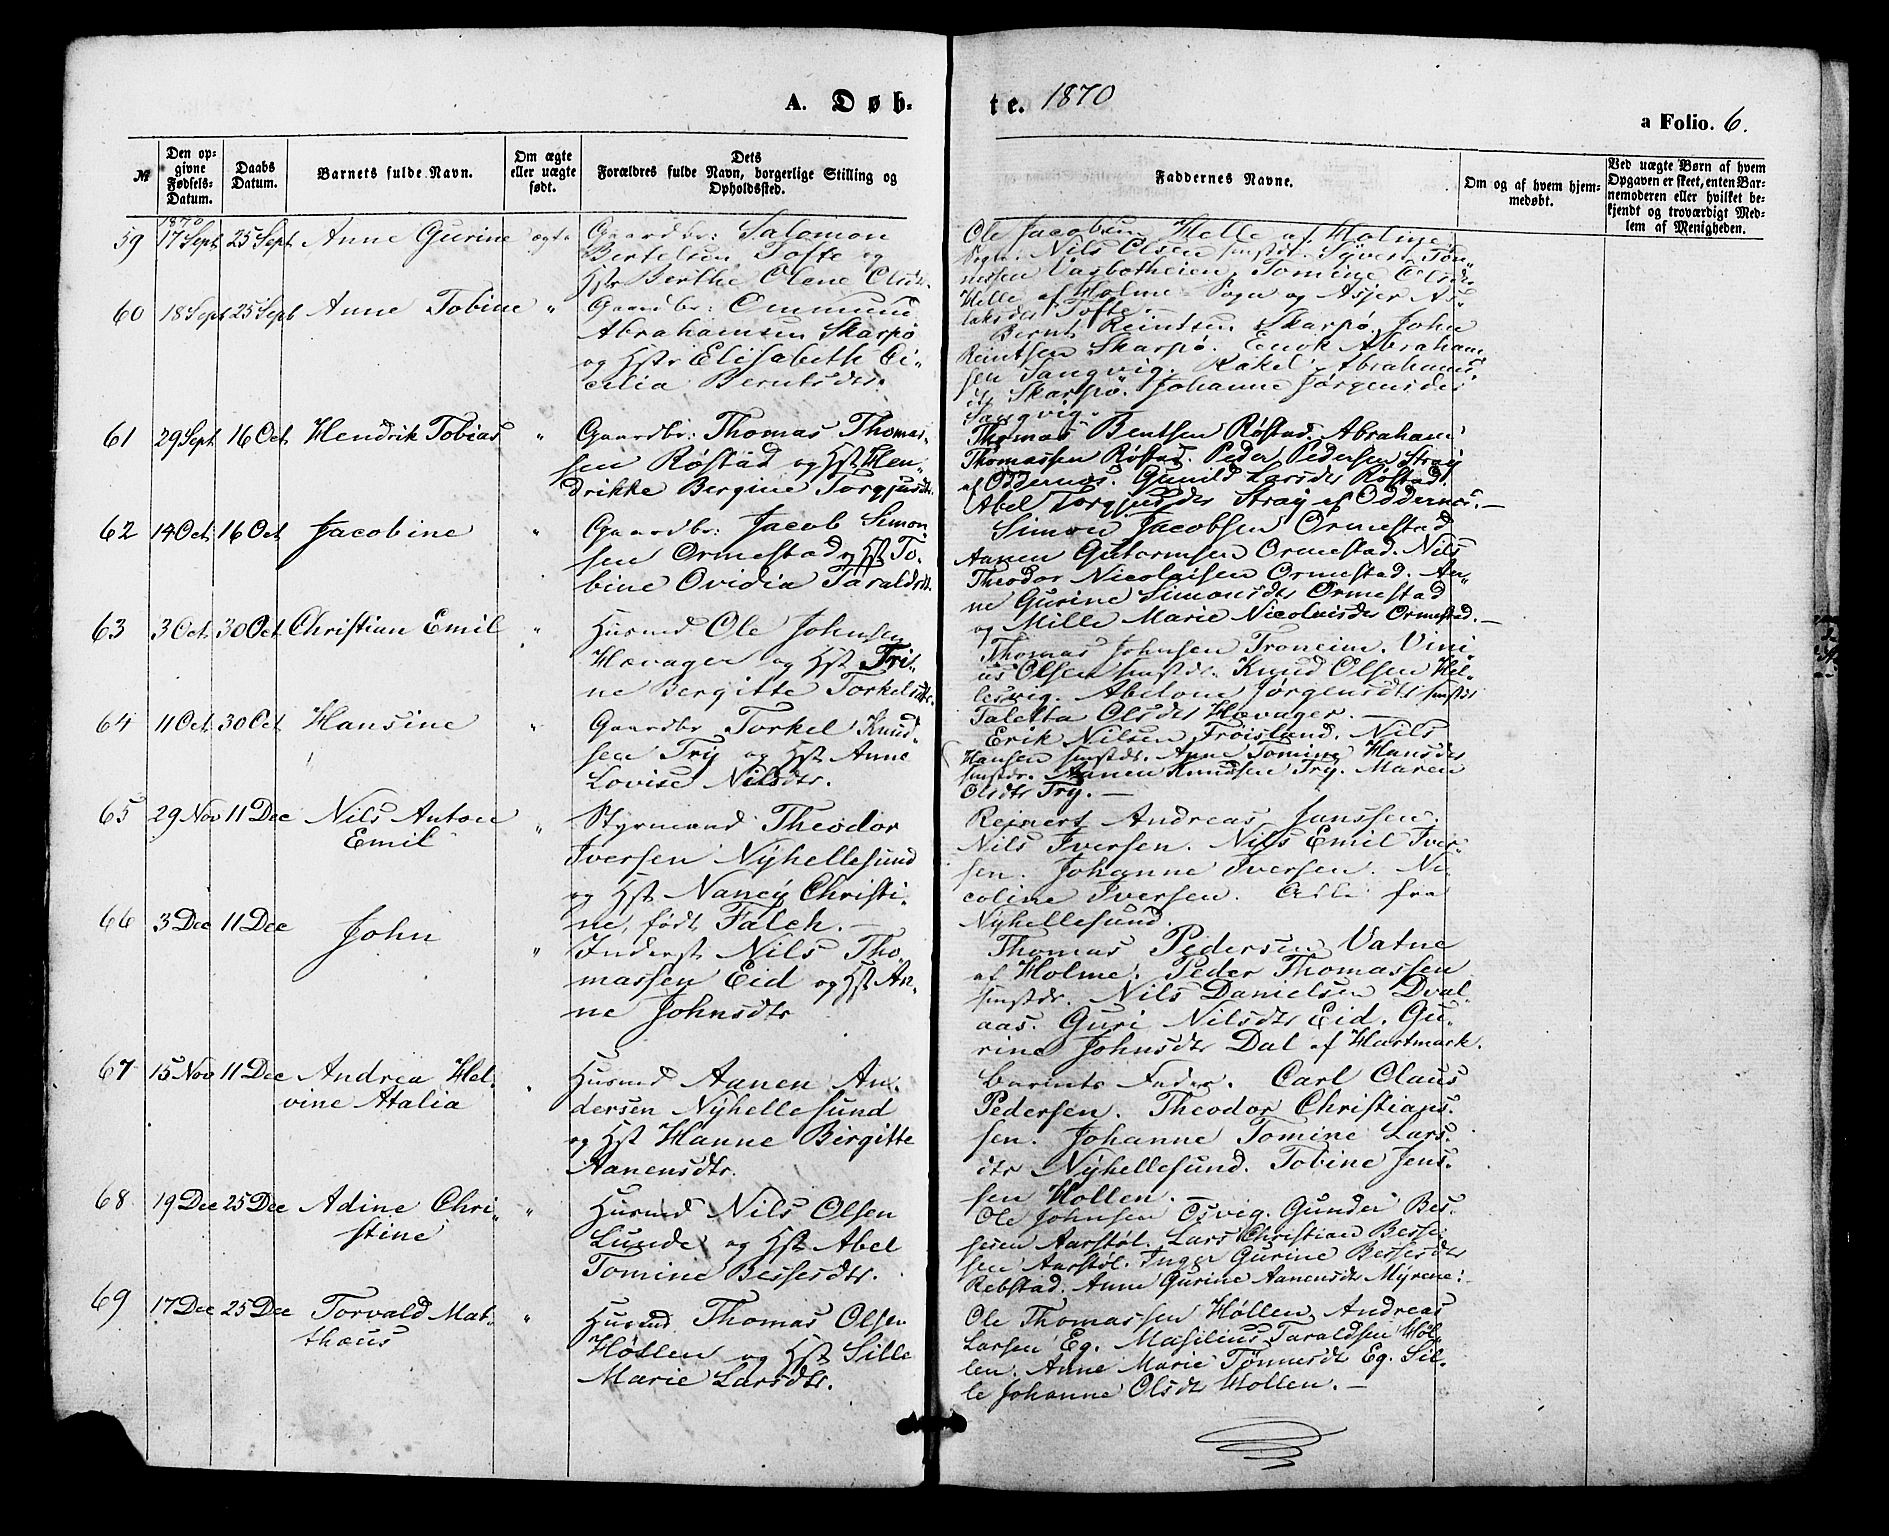 A. Døb-
te. 1870
a Folio. 6.
№
Den op-
givne
Fødsels-
Datum.
Daabs
Datum.
Barnets fulde Navn.
Om ægte
eller uægte
født.
Dets
Forældres fulde Navn, borgerlige Stilling og
Opholdssted.
Faddernes Navne.
Om og af hvem hjem-
medøbt.
Ved uægte Børn af hvem
Opgaven er skeet, enten Bar-
nemoderen eller hvilket be-
kjendt og troværdigt Med-
lem af Menigheden.
1870
59 17 Sept 25 Sept Anne Gurine ægte
Gaardbr: Salomon
Bertelsen Tofte og
Hst Berthe Olene Olsdtr.
Ole Jacobsen Helle af Holme
Sogn. Nils Olsen smstdr. Syvert Tøn-
nessen Vasbotheien, Tomine Olsdtr
Helle af Holme Sogn og Asjer As-
laksdtr Tofte.
60 18 Sept 25 Sept Anne Tobine "
Gaardbr: Ommund
Abrahamsen Skarpø
og Hstr Elisabeth Ce-
celia Berntsdtr.
Bernt Reintsen Skarpø. John
Reintsen Skarpø. Enok Abraham-
sen Langvig. Rakel Abrahams
dtr Skarpø. Johanne Jørgensdtr
Langvig.
61 29 Sept 16 Oct Hendrik Tobias "
Gaardbr: Thomas Thomas-
sen Røstad og Hst Hen-
drikke Bergine Torgjusdtr.
Thomas Bentsen Røstad. Abraham
Thomassen Røstad. Peder Pedersen Stray
af Oddernæs. Gunild Larsdtr Røstad.
Abel Torgjusdtr Stray af Oddernæs. —
62 14 Oct 16 Oct Jacobine "
Gaardbr: Jacob Simon-
sen Ormestad og Hst To-
bine Ovidia Taraldsdtr.
Simon Jacobsen Ormestad
Aanen Gutormsen Ormestad. Nils
Theodor Nicolaisen Ormestad. An-
ne Gurine Simonsdtr Ormestad
og Mille Marie Nicolaisdtr Ormestad. —
63 3 Oct 30 Oct Christian Emil "
Husmd Ole Johnsen
Hævager og Hst Tri-
ne Bergitte Torkelsdtr.
Thomas Johnsen Troneim. Vini-
us Olsen smstdr. Knud Olsen Hel-
lesvig. Abelone Jørgensdtr smstdr
Taletta Olsdtr Hævager. —
64 11 Oct 30 Oct Hansine "
Gaardbr Torkel Knud-
sen Try og Hst Anne
Lovise Nilsdtr.
Erik Nilsen Frøisland. Nils
Hansen smstdr. Anne Tomine Hansdtr
smstdr. Aanen Knudsen Try. Maren
Olsdtr Try. —
65 29 Nov 11 Dec Nils Anton
Emil "
Styrmand Theodor
Iversen Nÿhellesund
og Hst Nancÿ Christi-
ne, født Falch. —
Reinert Andreas Janssen.
Nils Iversen. Nils Emil Iver-
sen. Johanne Iversen. Ni-
coline Iversen. Alle fra
Nÿhellesund.
66 3 Dec 11 Dec John "
Inderst Nils Tho-
massen Eid og Hst An-
ne Johnsdtr
Thomas Pedersen Vatne
af Holme. Peder Thomassen
smstdr. Nils Danielsen Dval-
aas. Guri Nilsdtr Eid. Gu-
rine Johnsdtr Dal af Hartmark.
67 15 Nov 11 Dec Andrea Hel-
vine Atalia "
Husmd Aanen An-
dersen Nÿhellesund
og Hst Hanne Birgitte
Aanensdtr.
Barnets Fader. Carl Claus
Pedersen. Theodor Christians-
sen. Johanne Tomine Lars-
dtr Nÿhellesund. Tobine Jens-
sen Høllen.
68 19 Dec 25 Dec Adine Chri-
stine "
Husmd Nils Olsen
Lunde og Hst Abel
Tomine Bessesdtr.
Ole Johnsen Osvig. Gunder Bes-
sesen Aarstøl. Lars Christian Besse-
sen Aarstøl. Inger Gurine Bessesdtr
Rebstad. Anne Gurine Aanensdtr Mÿrene.
69 17 Dec 25 Dec Torvald Mat-
thæus "
Husmd Thomas Olsen
Høllen og Hst Sille
Marie Larsdtr.
Ole Thomassen Høllen. Andreas
Larsen Eg. Masilius Taraldsen Høl-
len. Anne Marie Tønnesdtr Eg. Sil-
le Johanne Olsdtr Høllen. —